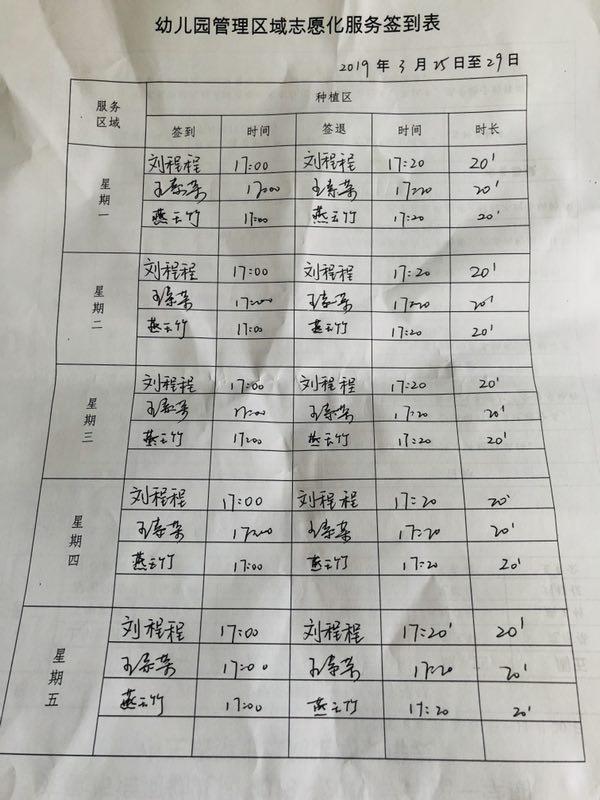 幼儿园管理区域志愿化服务签到表
2019 年 3 月 25 日至 29 日
服务区域 种植区
签到 时间 签退 时间 时长
星期一
刘程程 17:00 刘程程 17:20 20'
17:00 17:20 20'
燕云竹 17:00 燕云竹 17:20 20'
星期二
刘程程 17:00 刘程程 17:20 20'
17:00 17:20 20'
燕云竹 17:00 燕云竹 17:20 20'
星期三
刘程程 17:00 刘程程 17:20 20'
17:00 17:20 20'
燕云竹 17:00 燕云竹 17:20 20'
星期四
刘程程 17:00 刘程程 17:20 20'
17:00 17:20 20'
燕云竹 17:00 燕云竹 17:20 20'
星期五
刘程程 17:00 刘程程 17:20' 20'
17:00 17:20 20'
燕云竹 17:00 燕云竹 17:20 20'